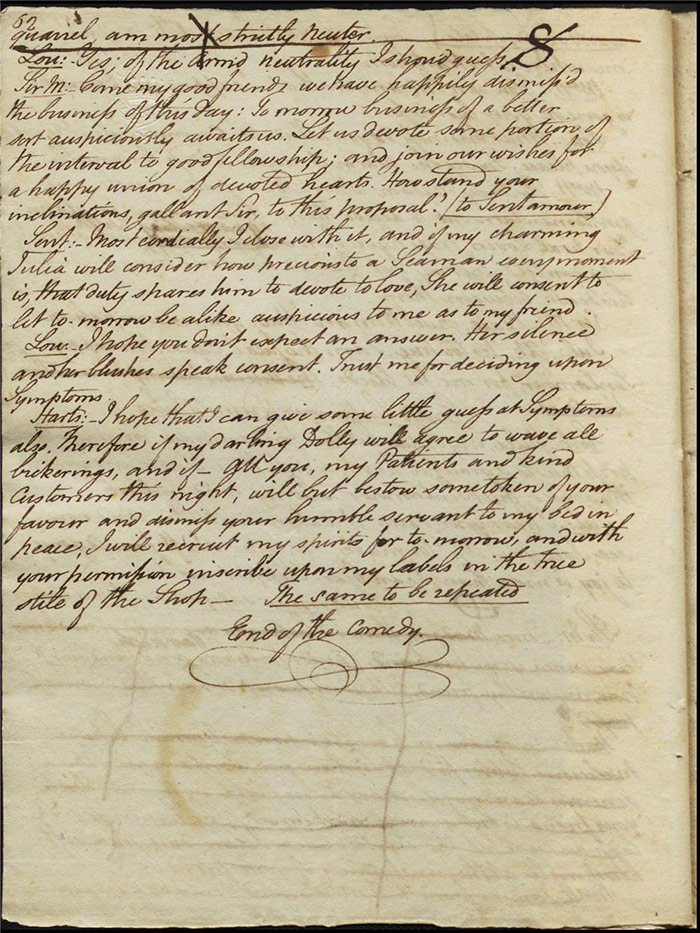 62
quarrel, am most strictly neuter
Lou: Yes; of the armd neutrality I shoud guess.
Sir M: Come my good friends we have happily dismiss'd
the business of this day: To morrow business of a better
sort auspiciously awaits us. Let us devote some portion of
the interval to good fellowship; and join our wishes for
a happy union of devoted hearts. How stand your
inclinations, gallant Sir, to this proposal? [to Sentamour]
Sent:- Most cordially I close with it, and if my charming
Julia will consider how precious to a Seaman every moment
is, that duty spares him to devote to love, She will consent to
let to-morrow be alike auspicious to me as to my friend.
Lou: I hope you don't expect an answer. Her silence
and her blushes speak consent. Trust me for deciding upon
Symptoms.
Harts:- I hope that I can give some little guess at Symptoms
also. Therefore if my darling Dolly will agree to wave all
bickerings, and if- all you, my Patients and kind
Customers this night, will but bestow some token of your
favour and dismiss your humble servant to my bed in
peace, I will recruit my spirits for to-morrow, and with
your permission inscribe upon my labels in the true
stile of the Shop- The same to be repeated
End of the Comedy.